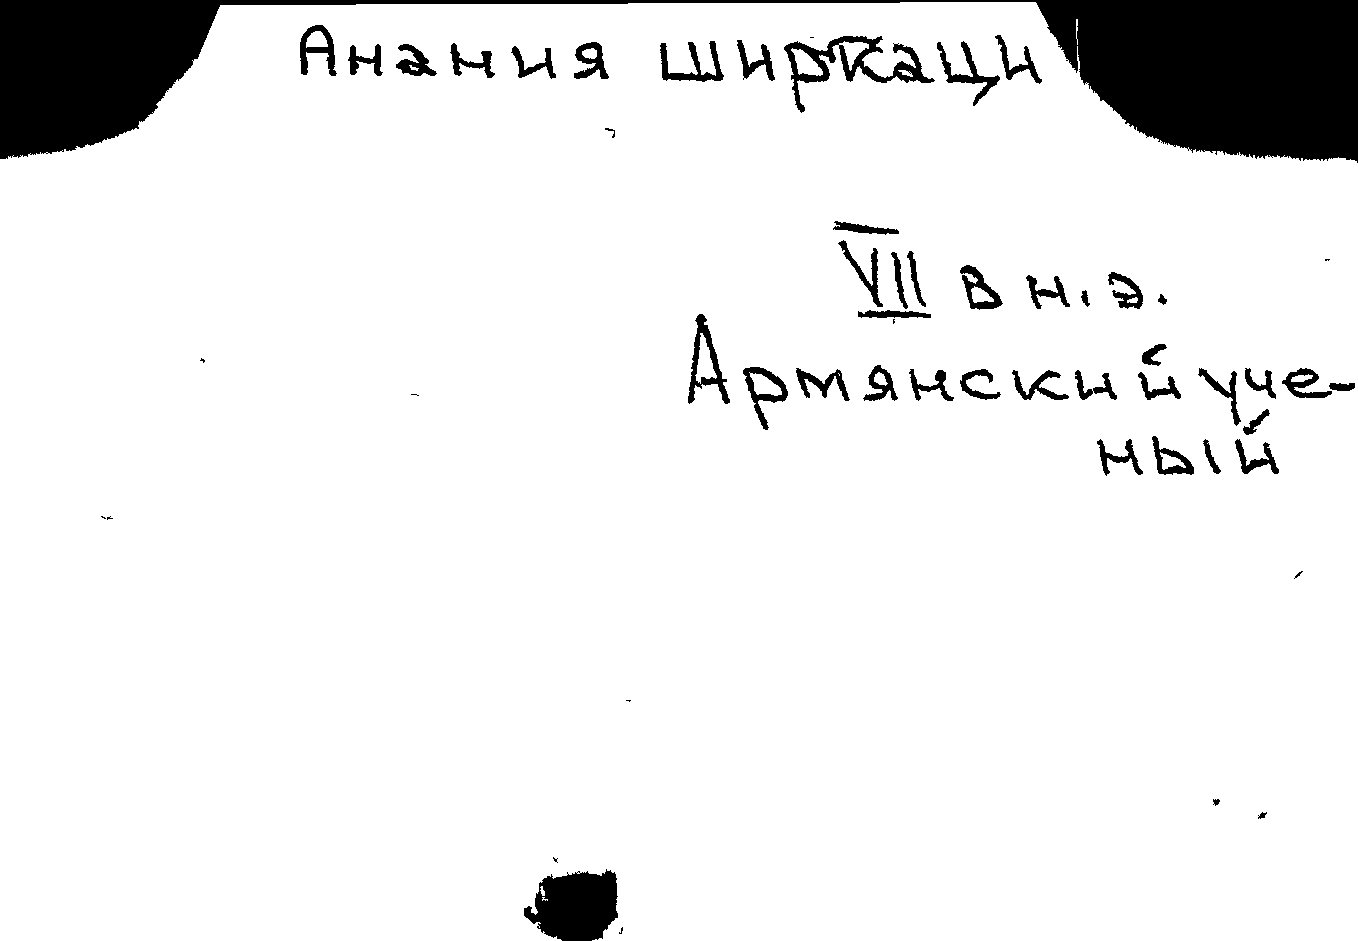 Анания ширкаци
VII в н.э.
Армянский уче-
ный